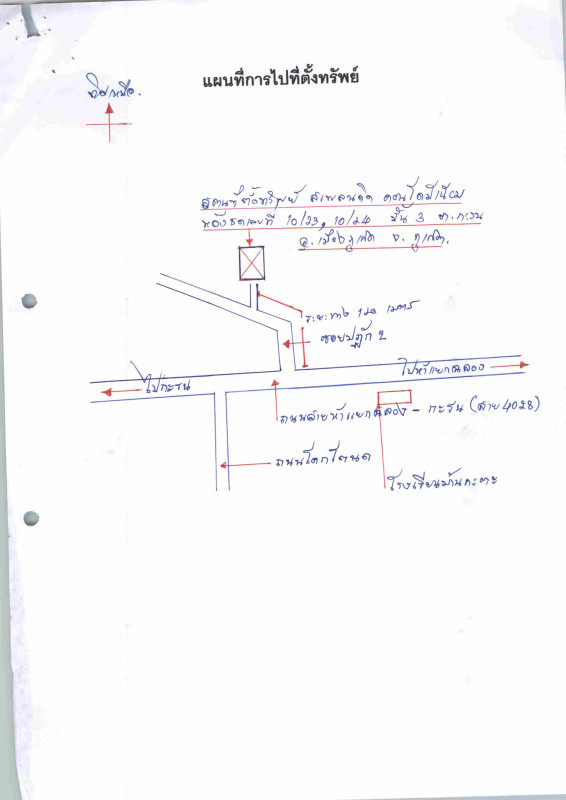 แผนที่การไปที่ตั้งทรัพย์
ทิศเหนือ.
สถานที่ตั้งทรัพย์ คอนโดมิเนียม
ห้องชุดเลขที่ 10/23, 10/24 ชั้น 3 ต.กะรน
อ.เมืองภูเก็ต จ.ภูเก็ต.
ระยะทาง เมตร
ซอยปฏัก 2
ไปห้าแยกฉลอง
ไปกะรน
ถนนสายห้าแยกฉลอง - กะรน (สาย 4028)
ถนนโคกโตนด
โรงเรียนบ้านกะตะ